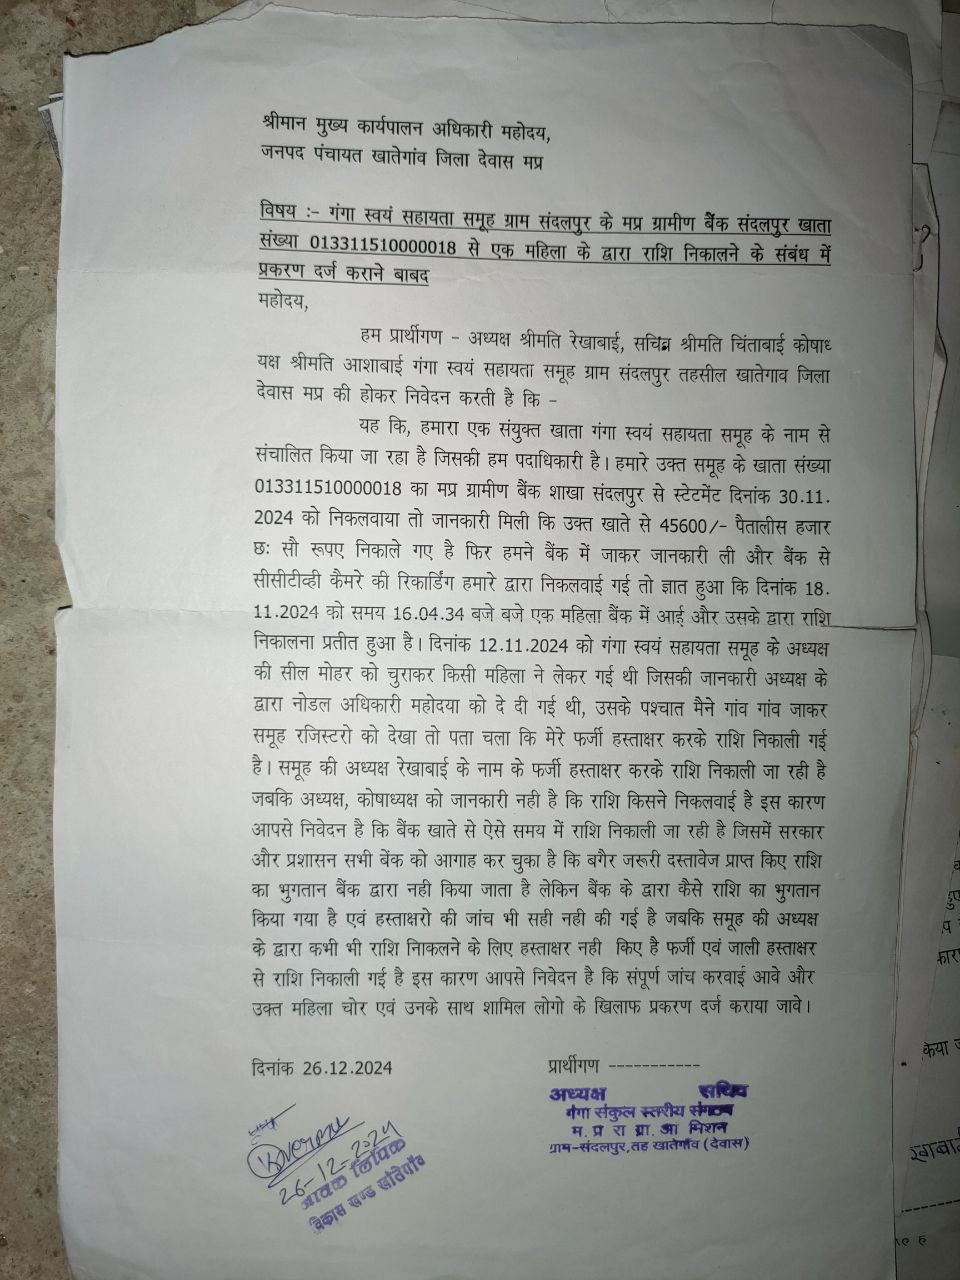 श्रीमान मुख्य कार्यपालन अधिकारी महोदय,
जनपद पंचायत खातेगांव जिला देवास मप्र
विषय :- गंगा स्वयं सहायता समूह ग्राम संदलपुर के मप्र ग्रामीण बैंक संदलपुर खाता
संख्या 013311510000018 से एक महिला के द्वारा राशि निकालने के संबंध में
प्रकरण दर्ज कराने बाबद
महोदय,
हम प्रार्थीगण - अध्यक्ष श्रीमति रेखाबाई, सचिव श्रीमति चिंताबाई कोषाध
यक्ष श्रीमति आशाबाई गंगा स्वयं सहायता समूह ग्राम संदलपुर तहसील खातेगाव जिला
देवास मप्र की होकर निवेदन करती है कि -
यह कि, हमारा एक संयुक्त खाता गंगा स्वयं सहायता समूह के नाम से
संचालित किया जा रहा है जिसकी हम पदाधिकारी है। हमारे उक्त समूह के खाता संख्या
013311510000018 का मप्र ग्रामीण बैंक शाखा संदलपुर से स्टेटमेंट दिनांक 30.11.
2024 को निकलवाया तो जानकारी मिली कि उक्त खाते से 45600/- पैतालीस हजार
छः सौ रूपए निकाले गए है फिर हमने बैंक में जाकर जानकारी ली और बैंक से
सीसीटीव्ही कैमरे की रिकार्डिंग हमारे द्वारा निकलवाई गई तो ज्ञात हुआ कि दिनांक 18.
11.2024 को समय 16.04.34 बजे बजे एक महिला बैंक में आई और उसके द्वारा राशि
निकालना प्रतीत हुआ है। दिनांक 12.11.2024 को गंगा स्वयं सहायता समूह के अध्यक्ष
की सील मोहर को चुराकर किसी महिला ने लेकर गई थी जिसकी जानकारी अध्यक्ष के
द्वारा नोडल अधिकारी महोदया को दे दी गई थी, उसके पश्चात मैने गांव गांव जाकर
समूह रजिस्टरो को देखा तो पता चला कि मेरे फर्जी हस्ताक्षर करके राशि निकाली गई
है। समूह की अध्यक्ष रेखाबाई के नाम के फर्जी हस्ताक्षर करके राशि निकाली जा रही है
जबकि अध्यक्ष, कोषाध्यक्ष को जानकारी नही है कि राशि किसने निकलवाई है इस कारण
आपसे निवेदन है कि बैंक खाते से ऐसे समय में राशि निकाली जा रही है जिसमें सरकार
और प्रशासन सभी बेंक को आगाह कर चुका है कि बगैर जरूरी दस्तावेज प्राप्त किए राशि
का भुगतान बैंक द्वारा नही किया जाता है लेकिन बैंक के द्वारा कैसे राशि का भुगतान
किया गया है एवं हस्ताक्षरो की जांच भी सही नही की गई है जबकि समूह की अध्यक्ष
के द्वारा कभी भी राशि निाकलने के लिए हस्ताक्षर नही किए है फर्जी एवं जाली हस्ताक्षर
से राशि निकाली गई है इस कारण आपसे निवेदन है कि संपूर्ण जांच करवाई आवे और
उक्त महिला चोर एवं उनके साथ शामिल लोगो के खिलाफ प्रकरण दर्ज कराया जावे।
दिनांक 26.12.2024
प्रार्थीगण -----------
अध्यक्ष सचिव
गंगा संकुल स्तरीय संगठन
म. प्र रा ग्रा. आ मिशन
ग्राम-संदलपुर, तह खातेगाँव (देवास)
26-12-2024
आवक लिपिक
विकास खण्ड खातेगाँव
केया